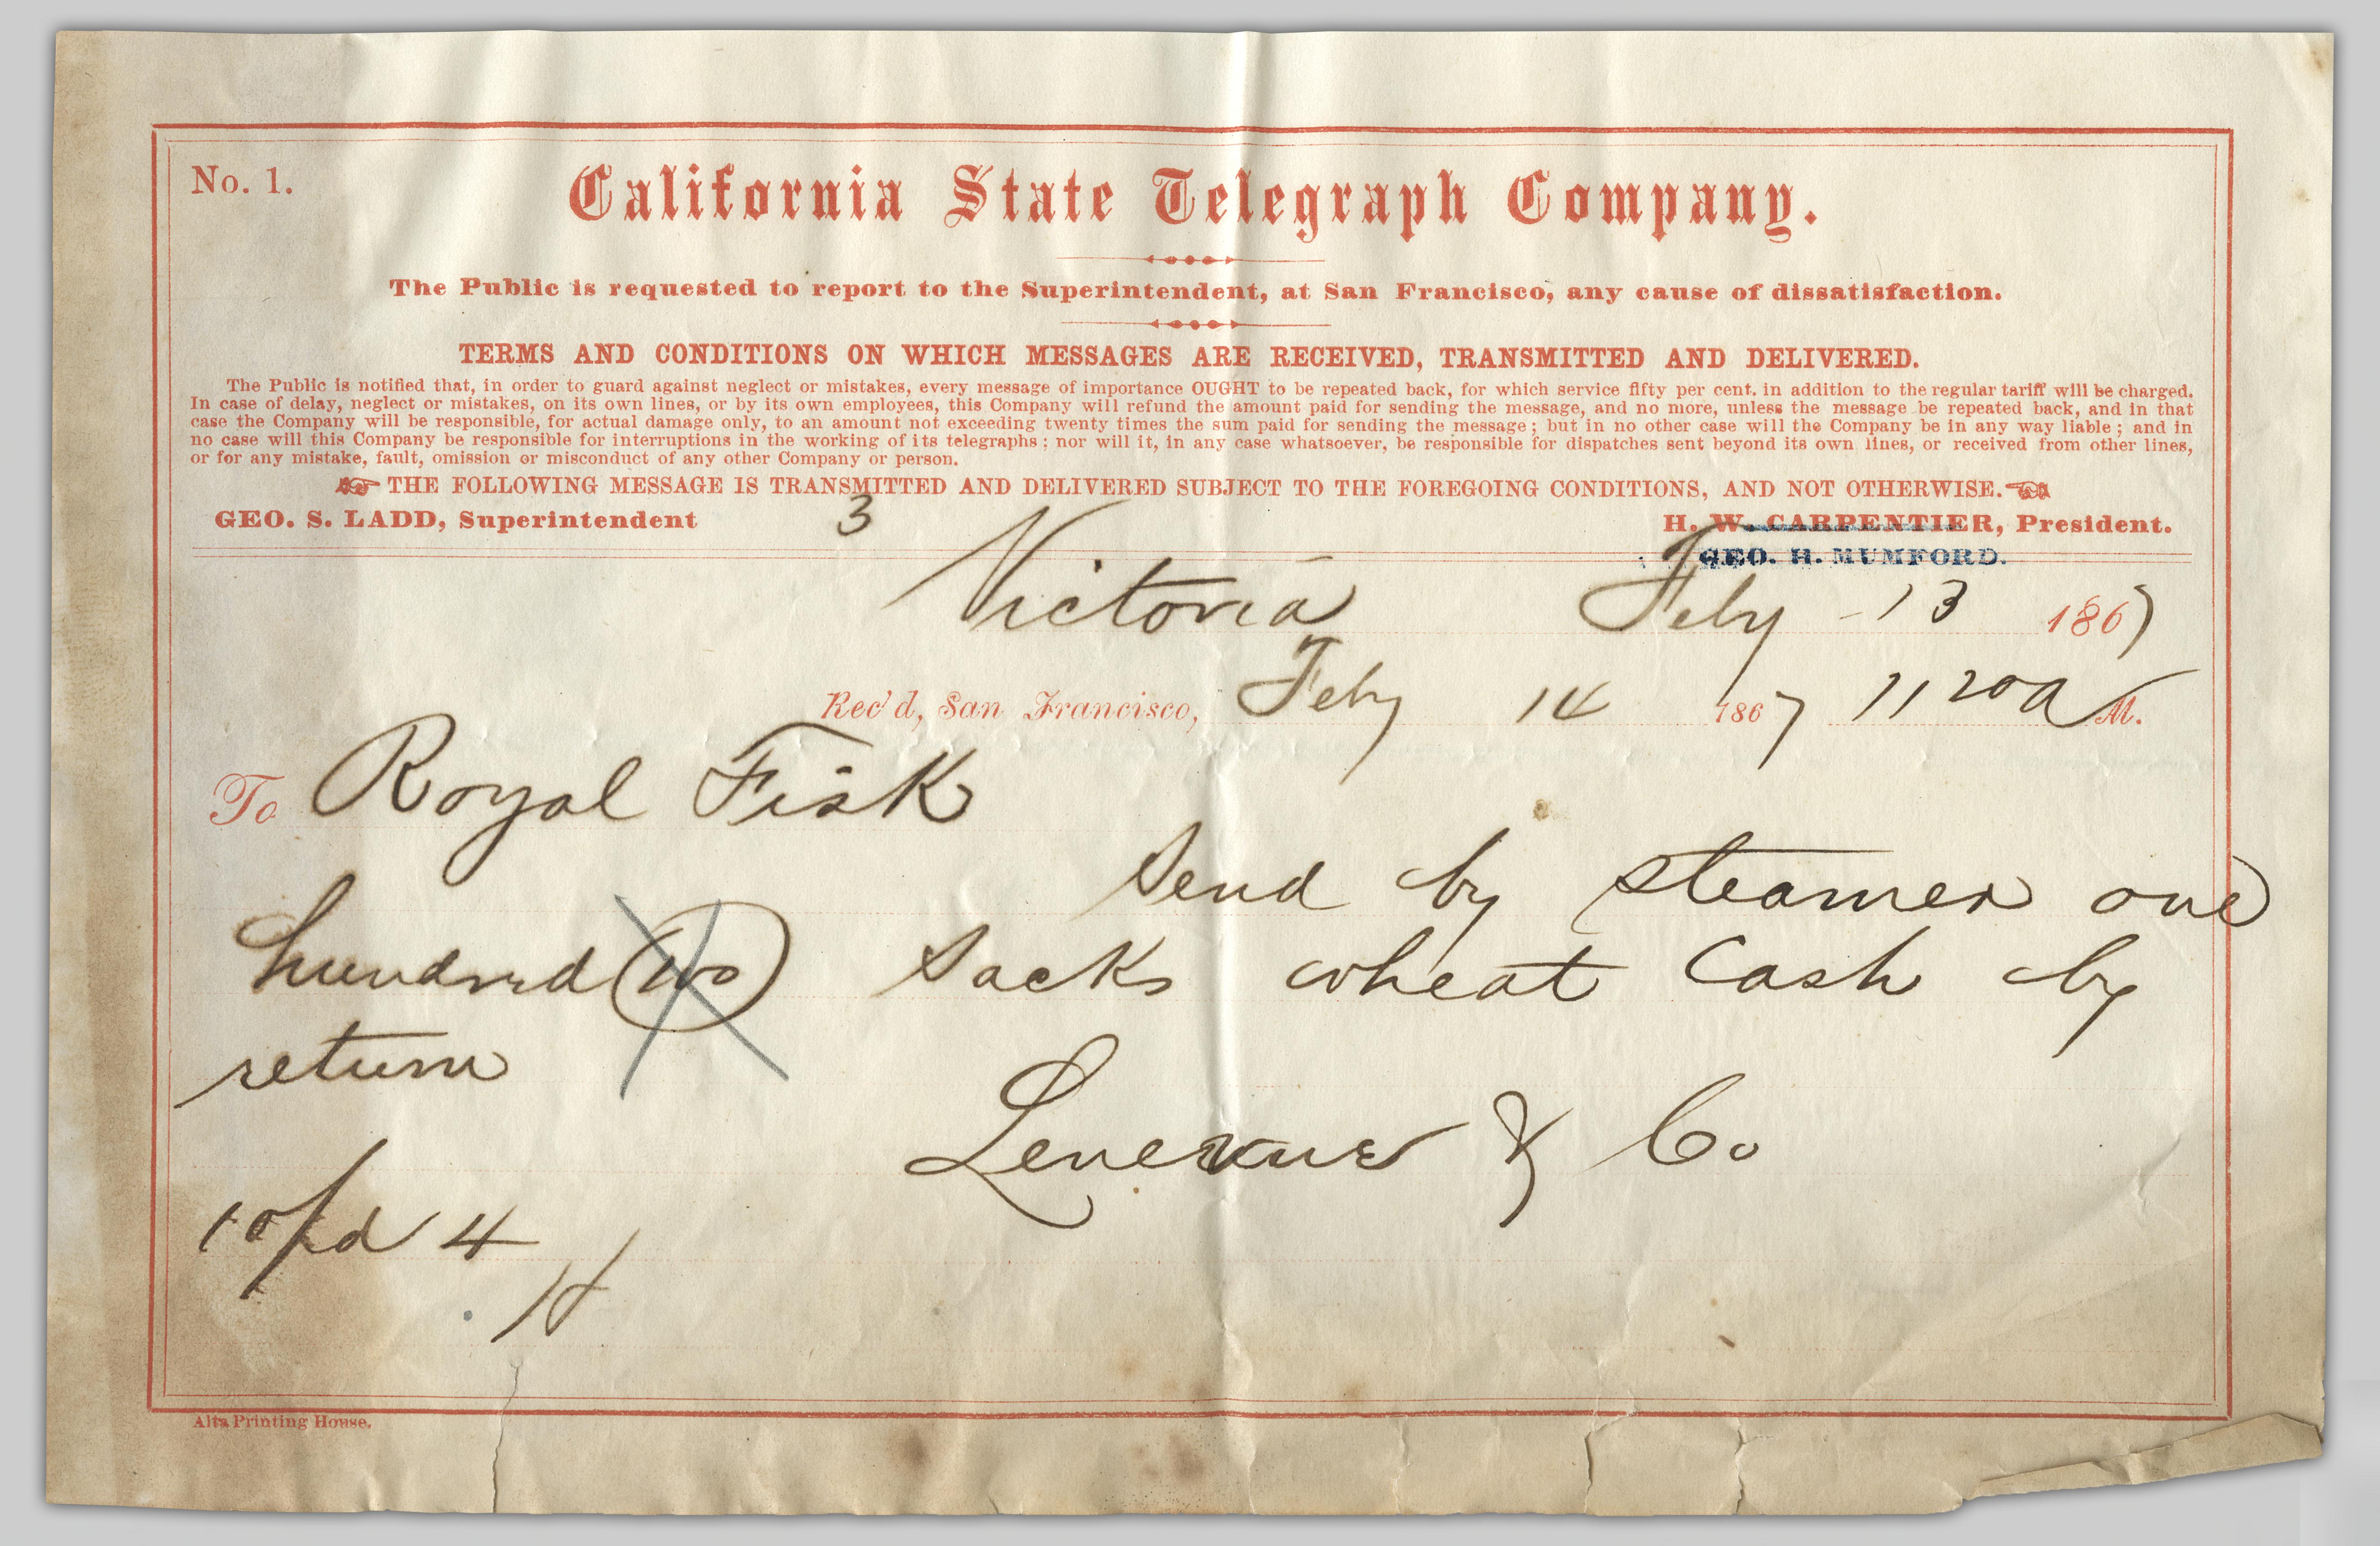 No. 1.
California State Telegraph Company.
The Public is requested to report to the Superintendent, at San Francisco, any cause of dissatisfaction.
TERMS AND CONDITIONS ON WHICH MESSAGES ARE RECEIVED, TRANSMITTED AND DELIVERED.
The Public is notified that, in order to guard against neglect or mistakes, every message of importance OUGHT to be repeated back, for which service fifty per cent. in addition to the regular tariff will be charged.
In case of delay, neglect or mistakes, on its own lines, or by its own employees, this Company will refund the amount paid for sending the message, and no more, unless the message be repeated back, and in that
case the Company will be responsible, for actual damage only, to an amount not exceeding twenty times the sum paid for sending the message; but in no other case will the Company be in any way liable; and in
no case will this Company be responsible for interruptions in the working of its telegraphs; nor will it, in any case whatsoever, be responsible for dispatches sent beyond its own lines, or received from other lines,
or for any mistake, fault, omission or misconduct of any other Company or person.
THE FOLLOWING MESSAGE IS TRANSMITTED AND DELIVERED SUBJECT TO THE FOREGOING CONDITIONS, AND NOT OTHERWISE.
GEO. S. LADD, Superintendent 3 H. W. CARPENTIER, President.
GEO. H. MUMFORD.
Victoria Feby 13 1867
Rec'd, San Francisco, Feby 14 1867 11 20 a M.
To Royal Fisk
Send by steamer one
hundred (100) sacks wheat Cash by
return
& Co
10 pd 4
H
Alta Printing House.